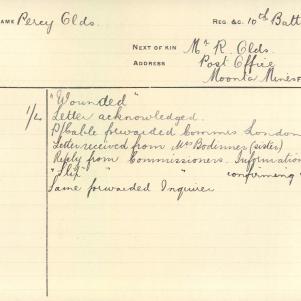 NAME Percy Olds.
REG. &c. 10th Batt
NEXT OF KIN Mr R. Olds.
ADDRESS Post Office
Moonta Mines
"Wounded"
1/4 Letter acknowledged.
P/Cable forwarded Commrs London
Letter received from Mrs Bodinner (sister)
Reply from Commissioners. Information
confirming
Same forwarded Inquirer